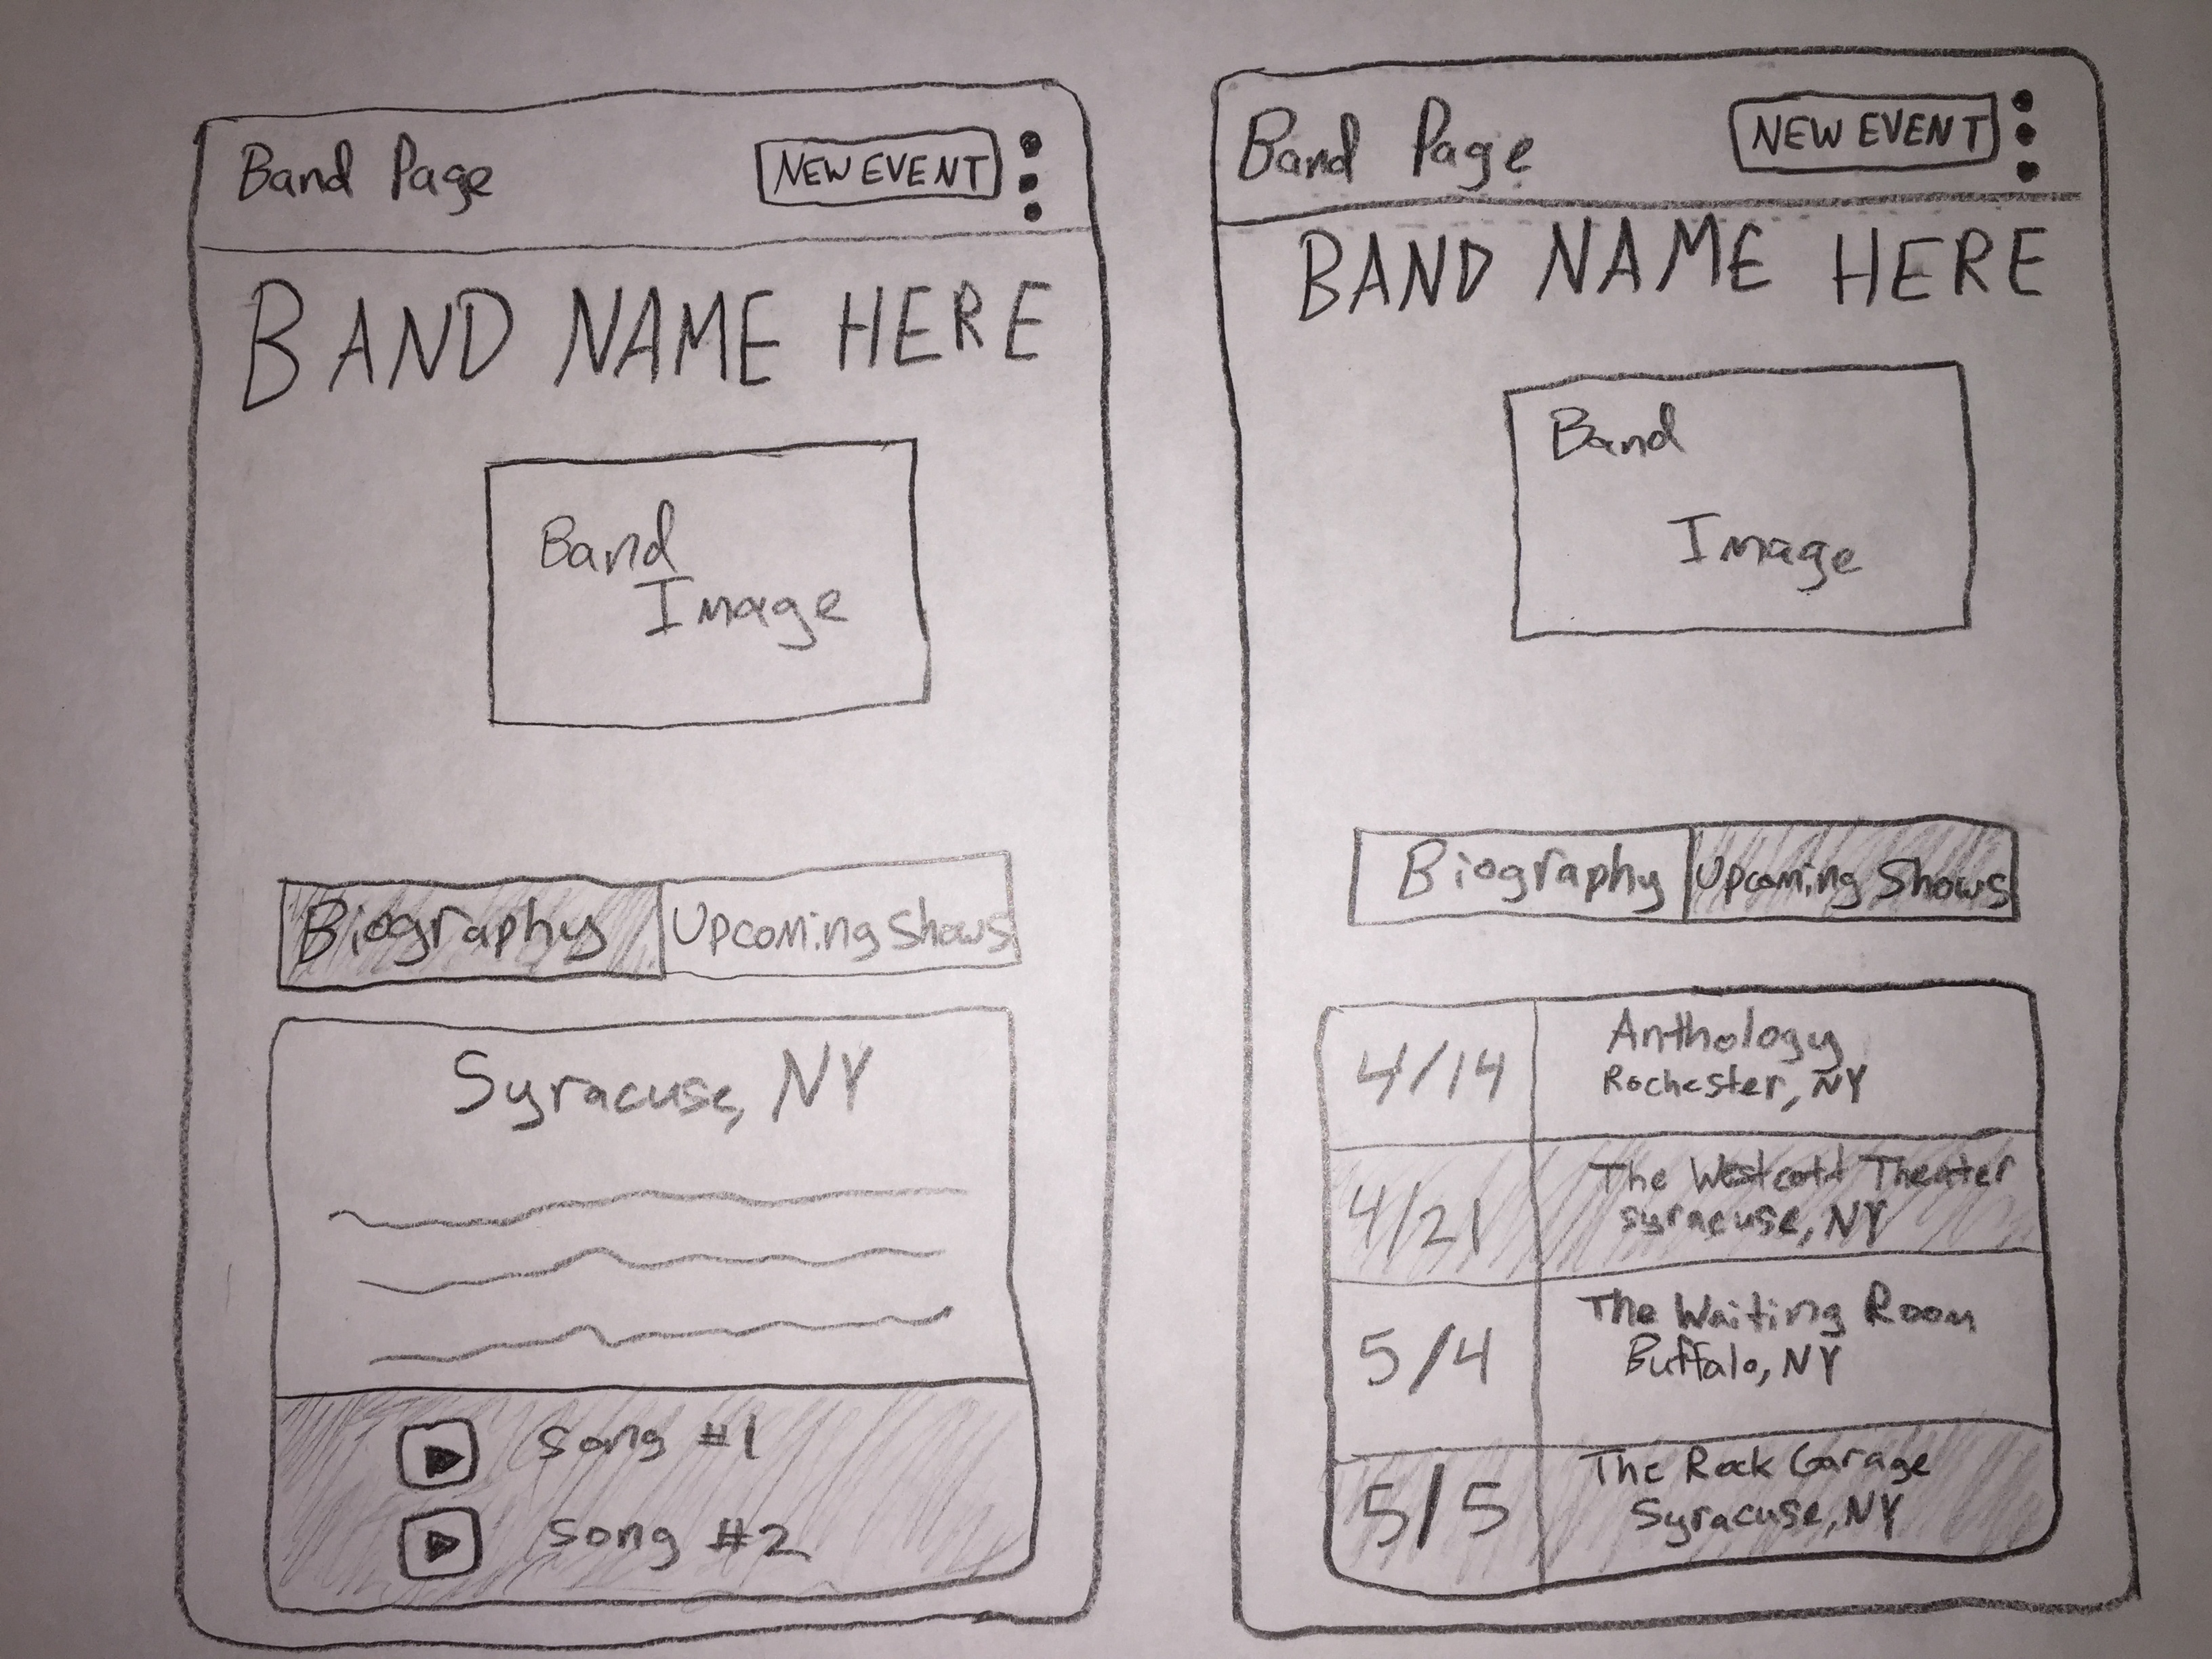 Band Page
NEW EVENT
BAND NAME HERE
Band
Image
Biography
Upcoming Shows
Syracuse, NY
Song #1
Song #2
Band Page
NEW EVENT
BAND NAME HERE
Band
Image
Biography
Upcoming Shows
4/14
Anthology
Rochester, NY
4/21
The Westcott Theater
Syracuse, NY
5/4
The Waiting Room
Buffalo, NY
5/5
The Rock Garage
Syracuse, NY